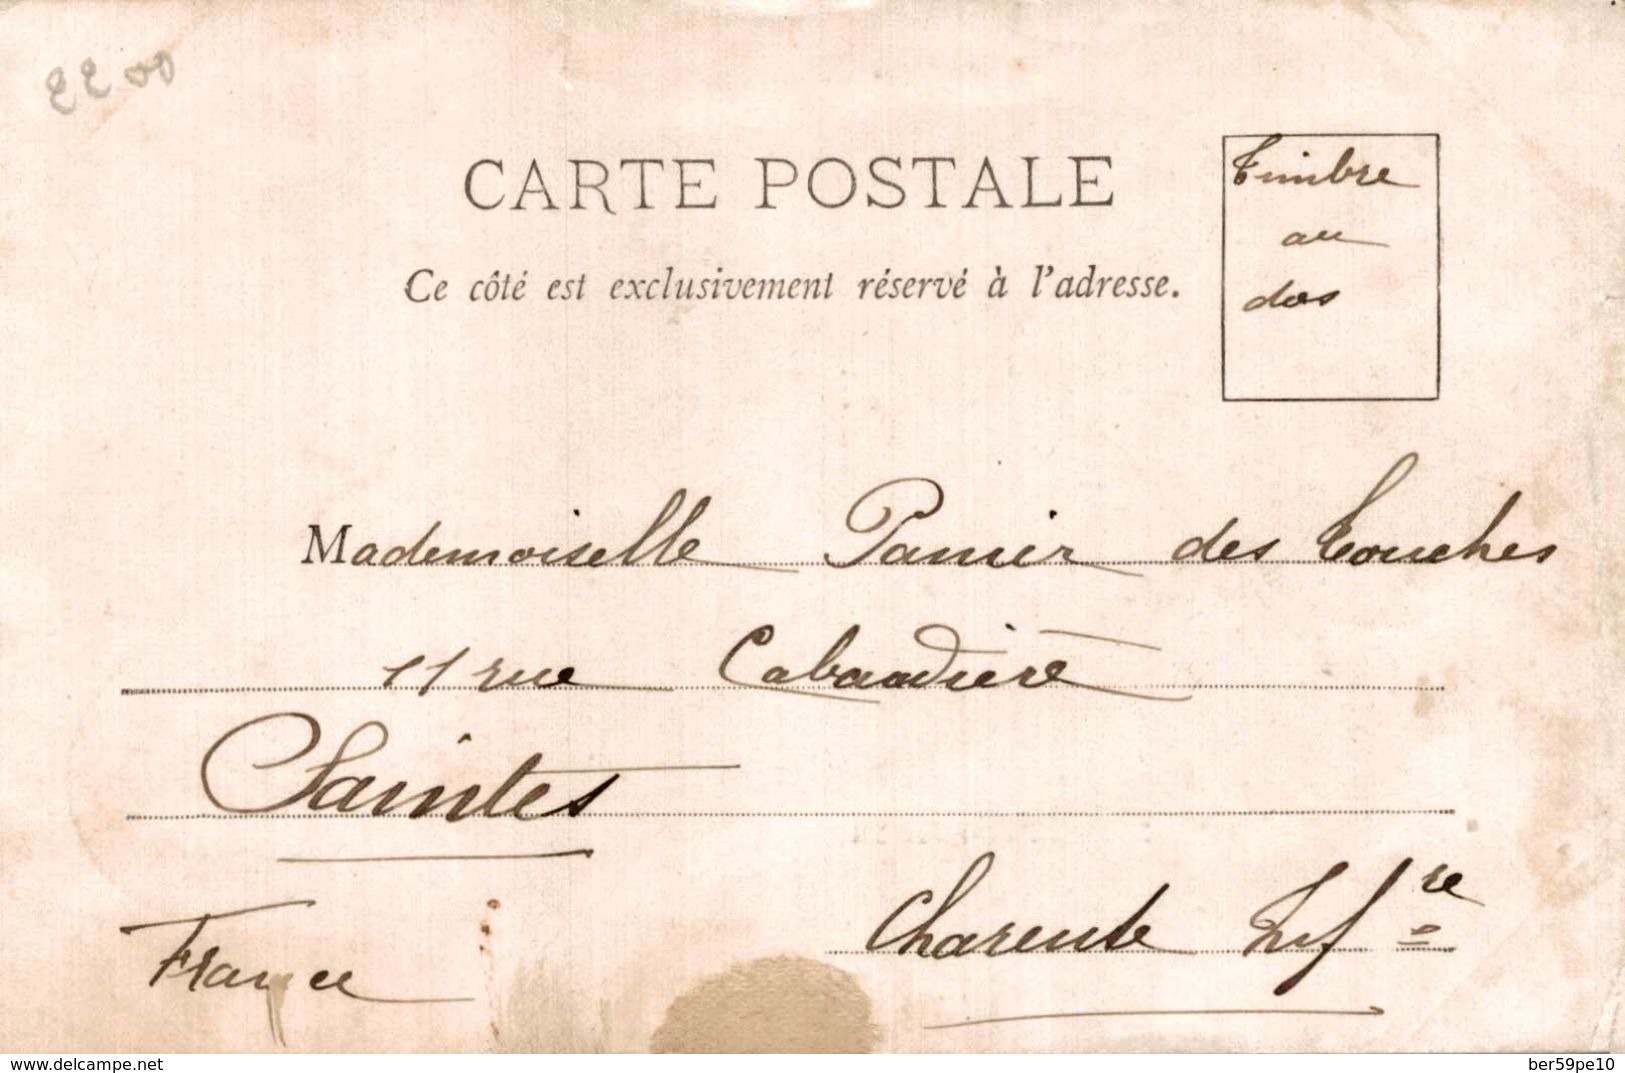 2200
CARTE POSTALE
Timbre
au
dos
Ce côté est exclusivement réservé à l'adresse.
Mademoiselle Panier des Touches
11 rue Cabaudière
Saintes
Charente Infre
France
www.delcampe.net
ber59pe10